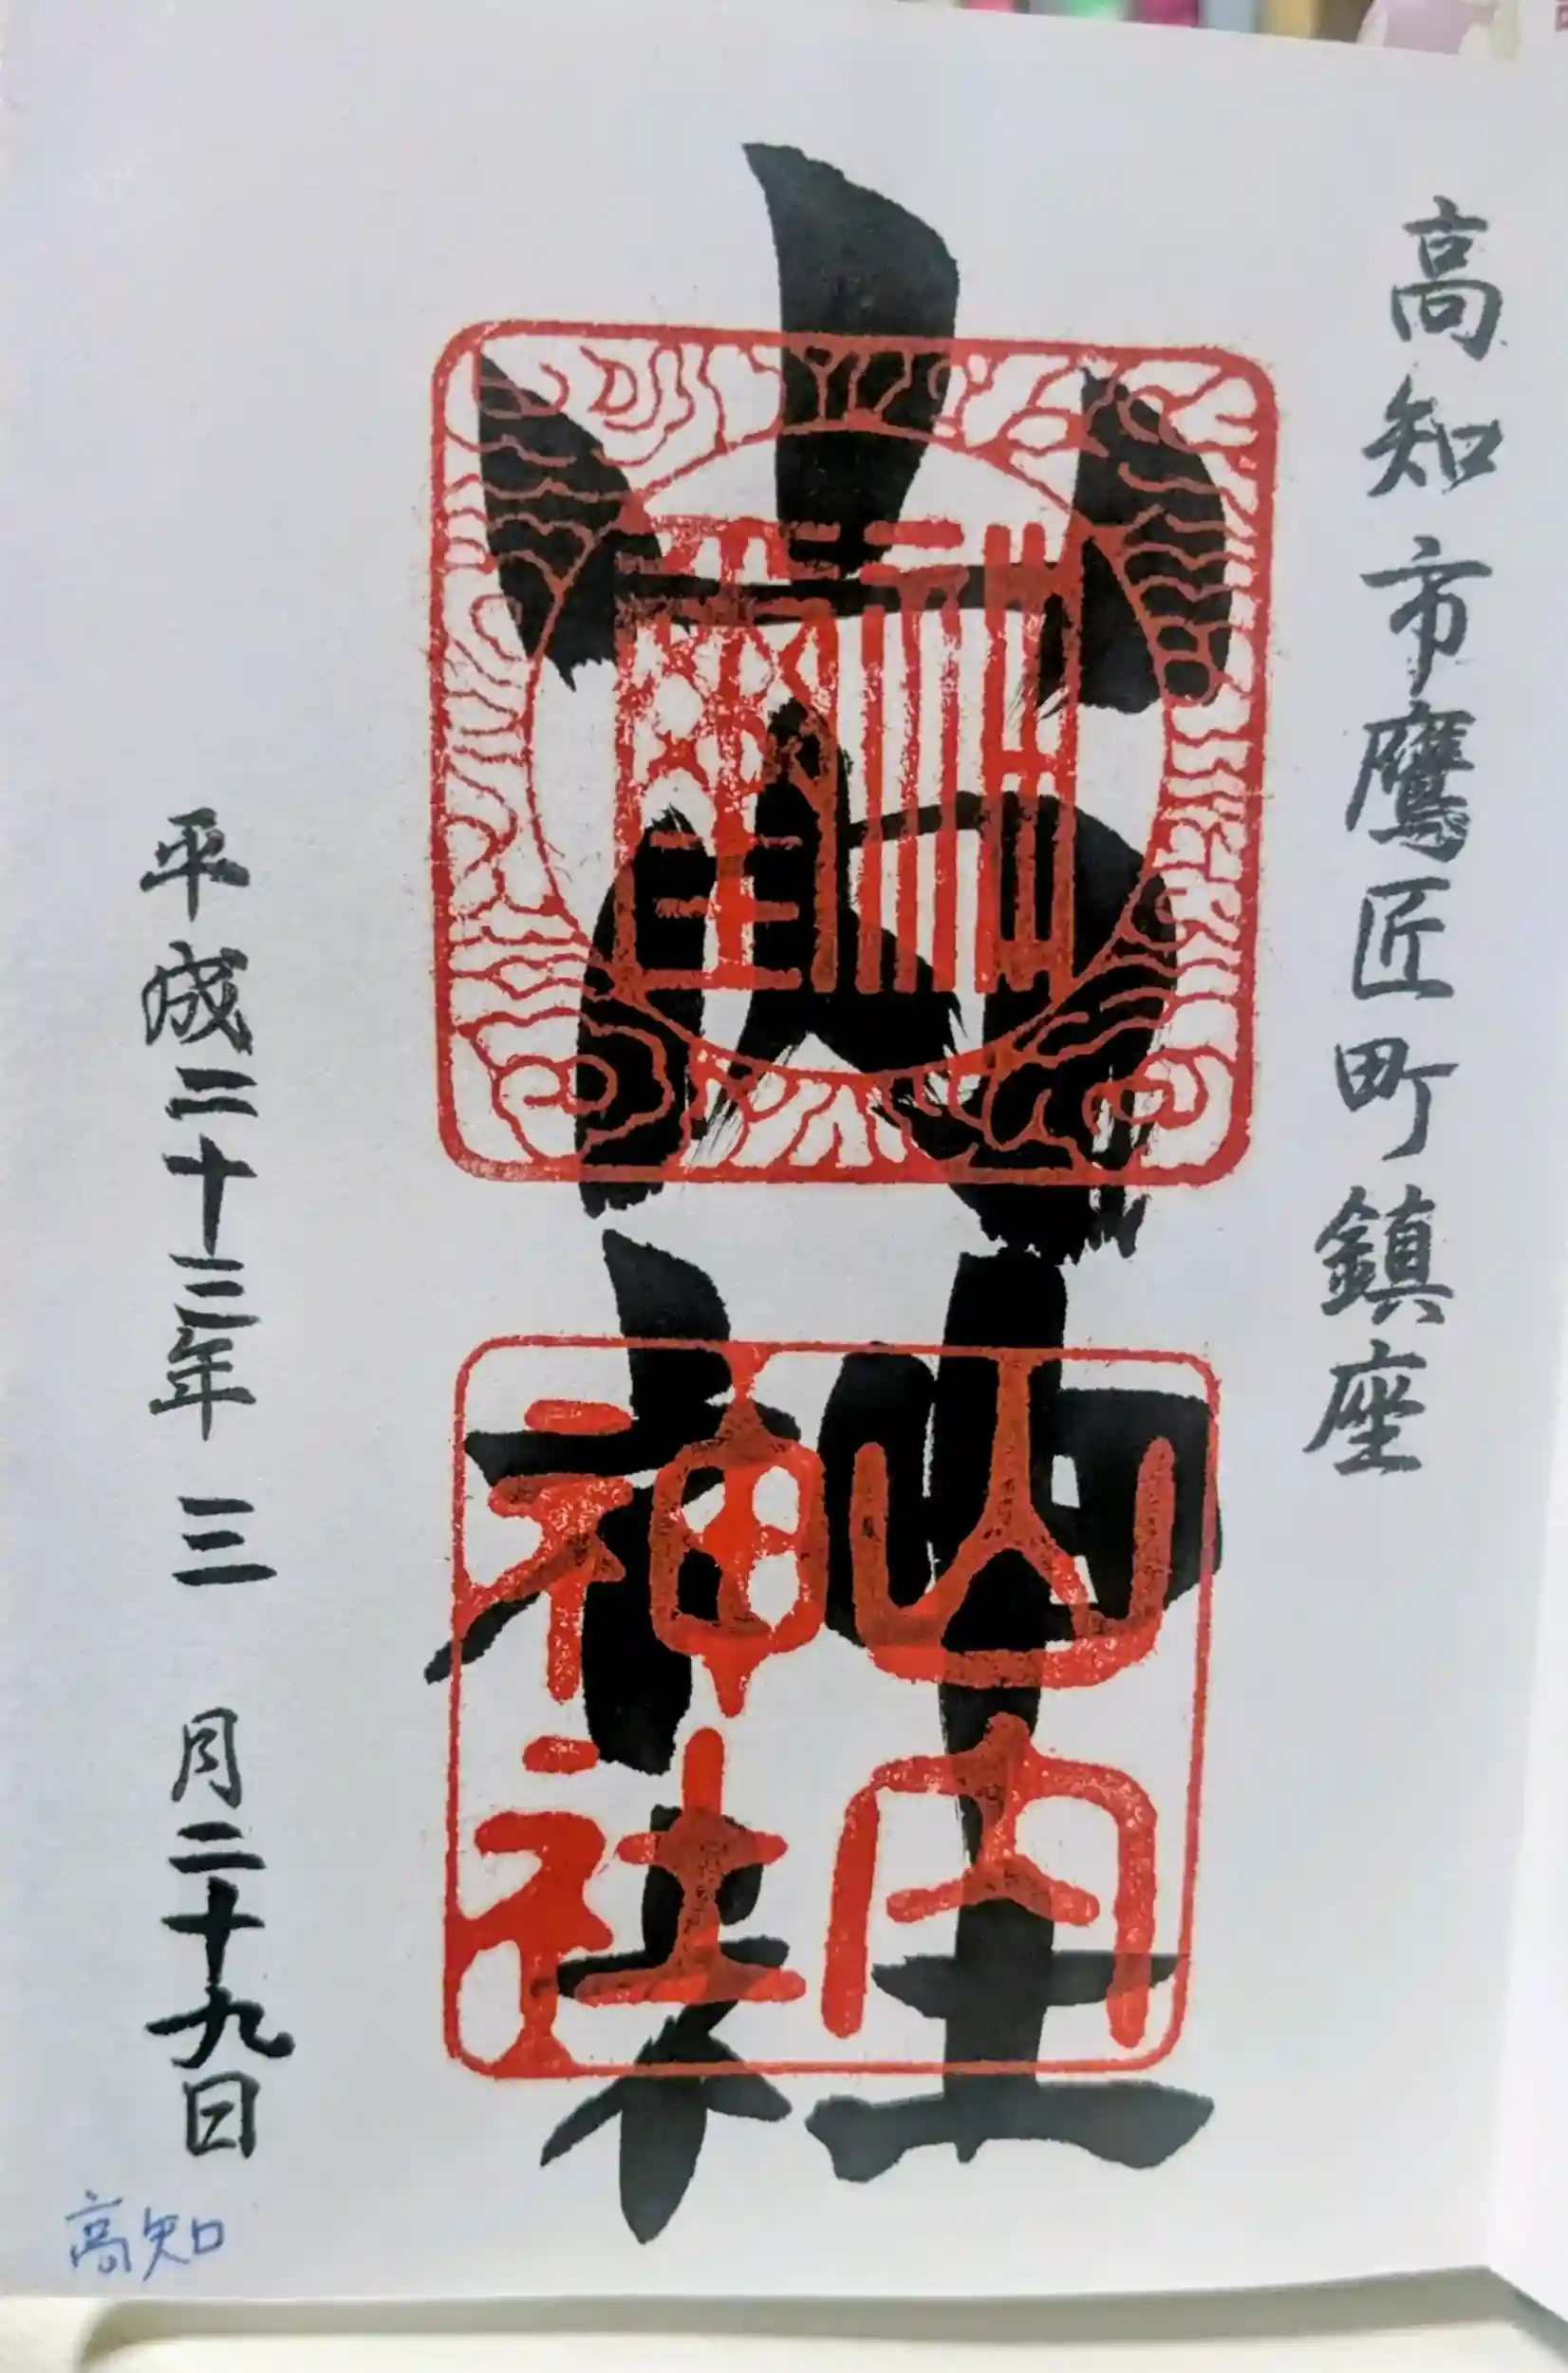 高知市鷹匠町鎮座
山内神社
山内
神社
平成二十三年三月二十九日
高知